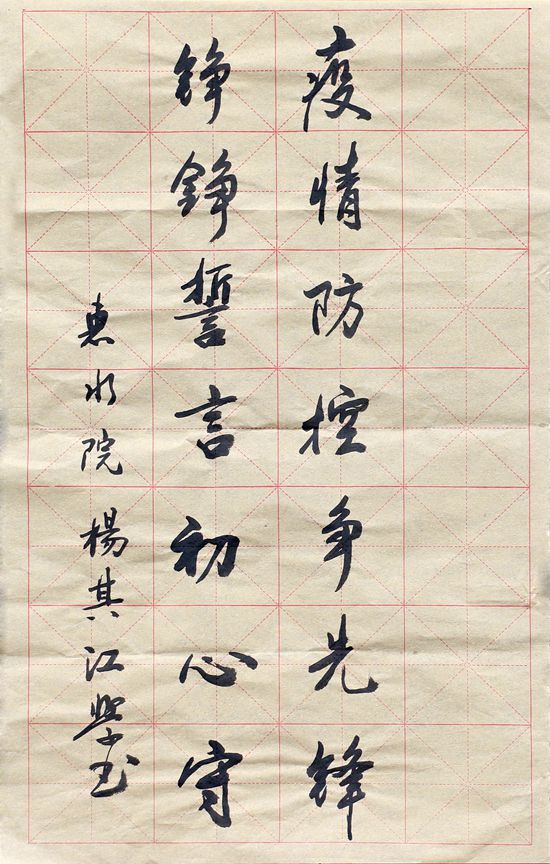 疫情防控争先锋
铮铮誓言初心守
惠水院 楊其江學书